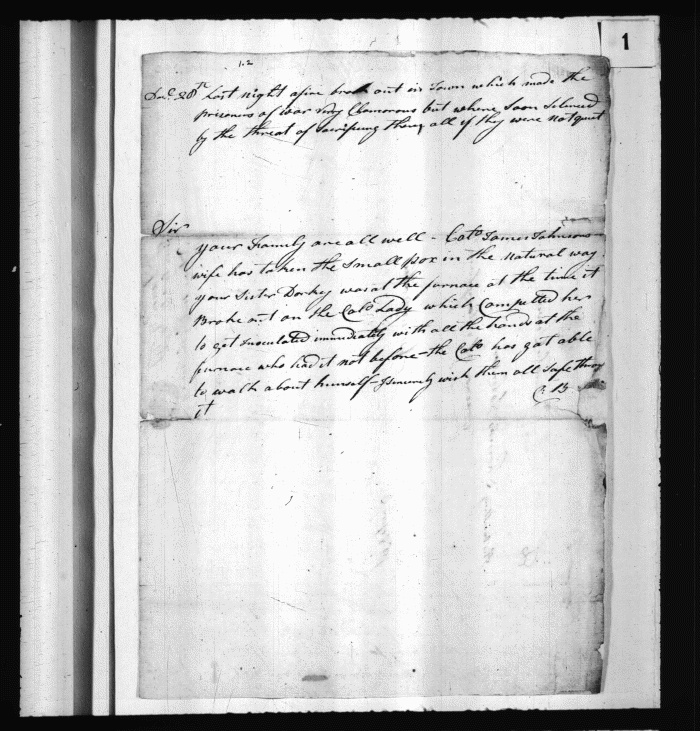 1
12
Decr 28th Last night afire broak out in Town which made the
prisoners of war very Clamorous but where soon silenced
by the threat of sacrifising them all if they were not quiet
Sir
your Family are all well - Colo James Johnsons
wife has taken the small pox in the natural way
your Sister Dorkey was at the furnace at the time it
Broke out on the Colo Lady which Compelled her
to get Inoculated immediately with all the hands at the
furnace who had it not before - the Colo has got able
to walk about himself - I sincerely wish them all safe throu
it
C. B